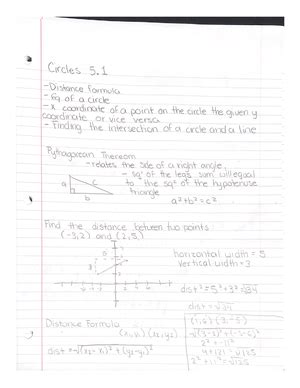 Circles 5.1
- Distance formula
- Eq of a circle
- x coordinate of a point on the circle the given y
coordinate or vice versa
- Finding the intersection of a circle and a line
Pythagorean Thereom
- relates the side of a right angle.
- sq of the legs sum will equal
to the sq of the hypotenuse
triangle
a
c
b
a²+b²=c²
Find the distance between two points
(-3,2) and (2,5)
horizontal width = 5
vertical width = 3
dist² = 5² + 3² = √34
dist = √34
Distance Formula
(x₁,y₁) (x₂,y₂)
dist = √(x₂-x₁)² + (y₂-y₁)²